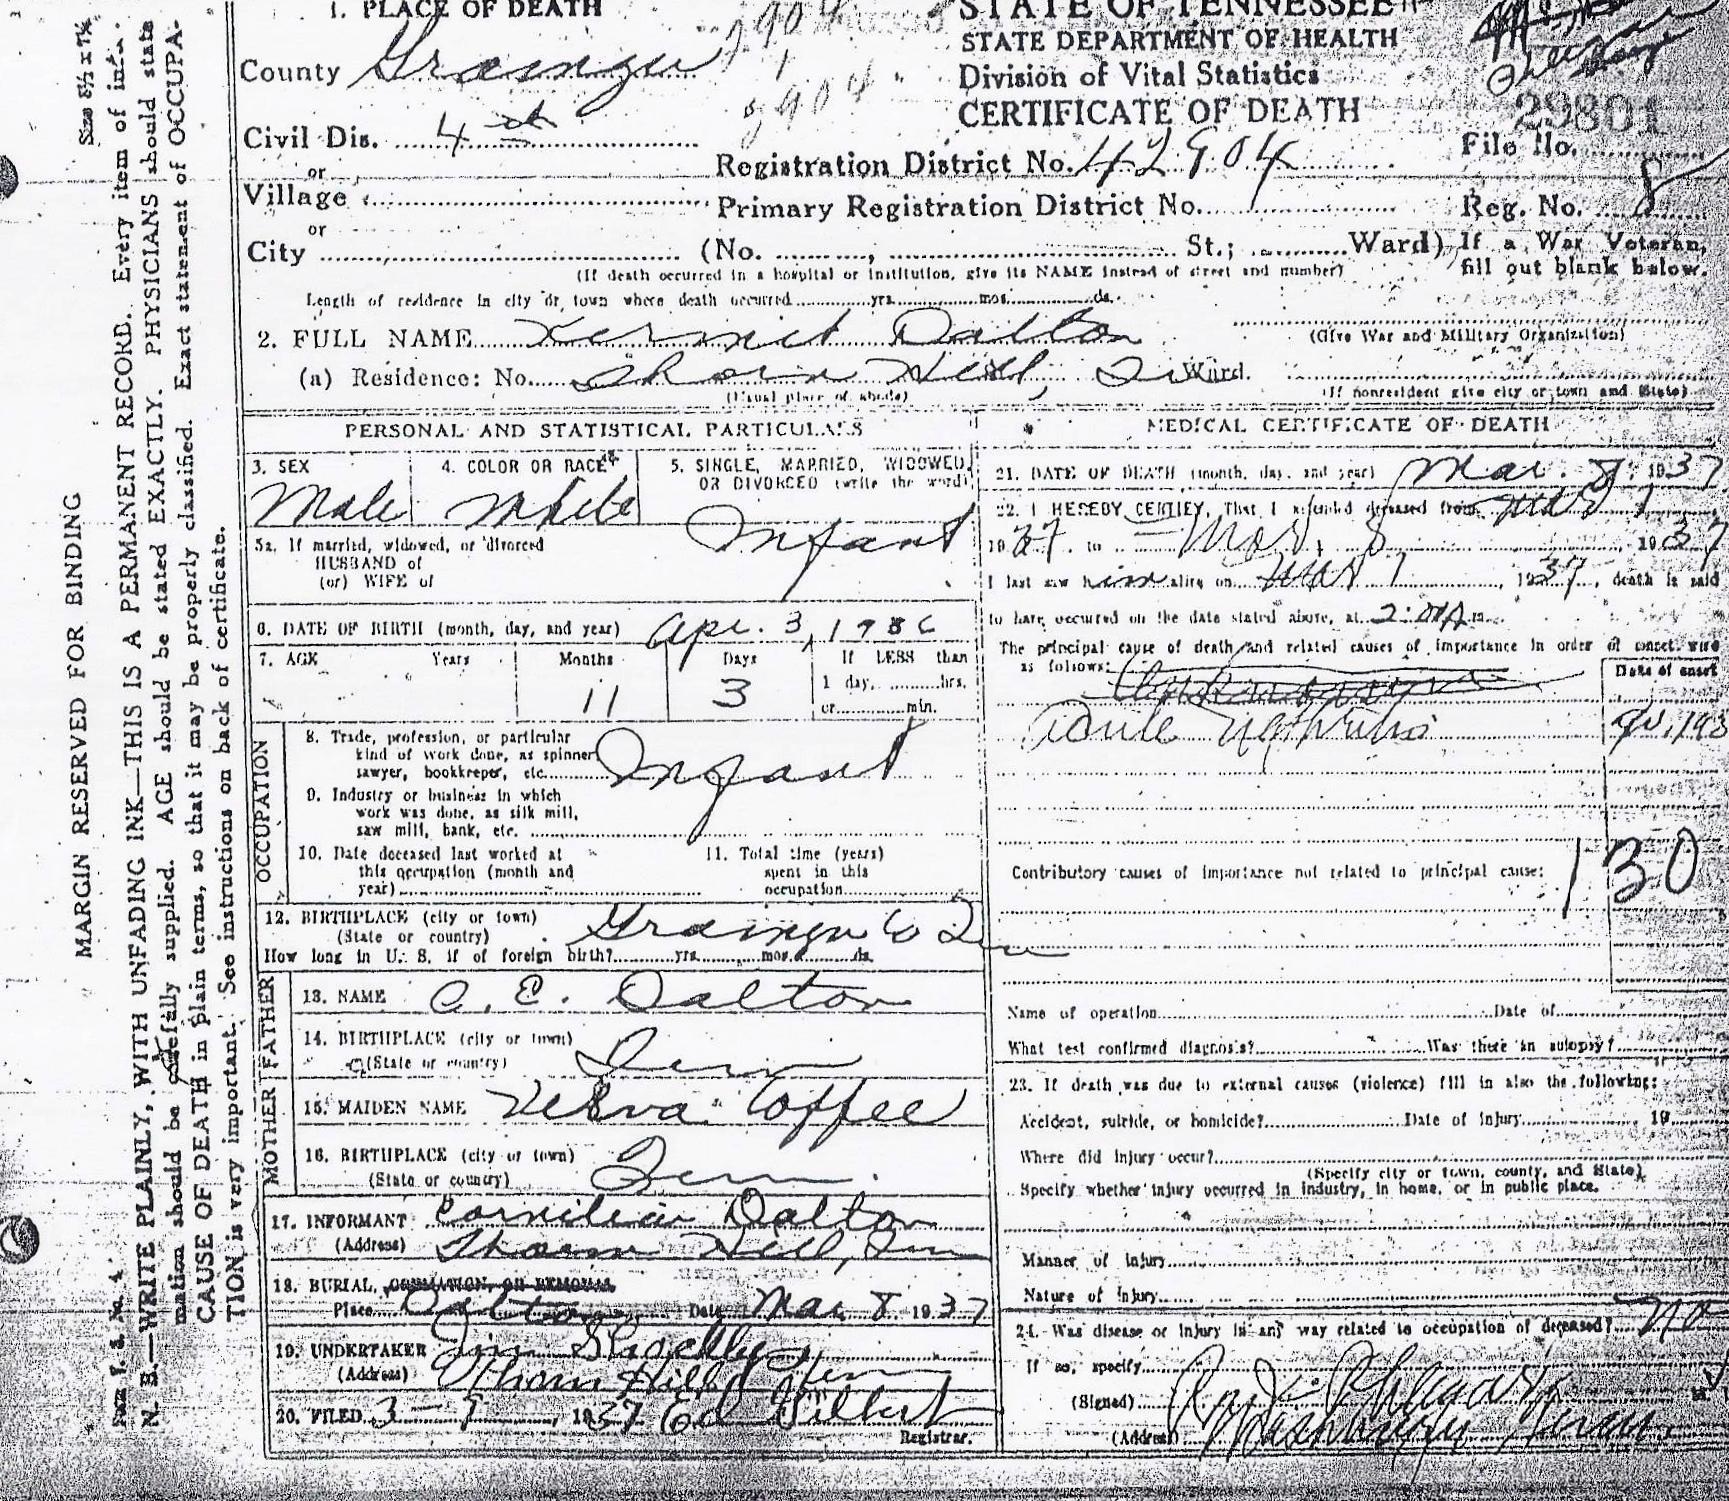 1. PLACE OF DEATH
STATE OF TENNESSEE
STATE DEPARTMENT OF HEALTH
Division of Vital Statistics
CERTIFICATE OF DEATH
County Grainger
904
Civil Dis. 4th
29801
File No.
or
Village
Registration District No. 42904
Primary Registration District No.
Reg. No. 8
or
City (No. , St.; Ward)
If a War Veteran, fill out blank below.
(If death occurred in a hospital or institution, give its NAME instead of street and number)
Length of residence in city or town where death occurred yrs. mos. ds.
2. FULL NAME Kermit Dalton
(Give War and Military Organization)
(a) Residence: No. Thorn Hill, Ward.
(Usual place of abode)
(If nonresident give city or town and State)
PERSONAL AND STATISTICAL PARTICULARS
3. SEX
Male
4. COLOR OR RACE
White
5. SINGLE, MARRIED, WIDOWED,
OR DIVORCED (write the word)
Infant
5a. If married, widowed, or divorced
HUSBAND of
(or) WIFE of
6. DATE OF BIRTH (month, day, and year) Apr. 3, 1936
7. AGE Years Months Days If LESS than
11 3 1 day, hrs.
or min.
OCCUPATION
8. Trade, profession, or particular
kind of work done, as spinner
sawyer, bookkeeper, etc. Infant
9. Industry or business in which
work was done, as silk mill,
saw mill, bank, etc.
10. Date deceased last worked at
this occupation (month and
year)
11. Total time (years)
spent in this
occupation
12. BIRTHPLACE (city or town) Grainger Co Tenn
(State or country)
How long in U. S. if of foreign birth? yrs. mos. ds.
FATHER
13. NAME C. E. Dalton
14. BIRTHPLACE (city or town)
(State or country) Tenn
MOTHER
15. MAIDEN NAME Coffee
16. BIRTHPLACE (city or town)
(State or country) Tenn.
17. INFORMANT Dalton
(Address) Thorn Hill, Tenn
18. BURIAL, CREMATION, OR REMOVAL
Place Dalton Date Mar 8 1937
19. UNDERTAKER Jim
(Address) Thorn Hill Tenn
20. FILED 3-9, 1937 Ed Gilbert
Registrar.
MEDICAL CERTIFICATE OF DEATH
21. DATE OF DEATH (month, day, and year) Mar. 8, 1937
22. I HEREBY CERTIFY, That I attended deceased from Mar 1
1937 to Mar. 8, 1937
I last saw him alive on Mar 1, 1937, death is said
to have occurred on the date stated above, at 2: m.
The principal cause of death and related causes of importance in order of onset were
as follows:
Date of onset
Acute Nephritis
Contributory causes of importance not related to principal cause:
130
Name of operation Date of
What test confirmed diagnosis? Was there an autopsy?
23. If death was due to external causes (violence) fill in also the following:
Accident, suicide, or homicide? Date of injury 19
Where did injury occur?
(Specify city or town, county, and State)
Specify whether injury occurred in industry, in home, or in public place.
Manner of injury
Nature of injury
24. Was disease or injury in any way related to occupation of deceased? No
If so, specify
(Signed)
(Address) Washburn, Tenn.
Size 8½ x 7¾
MARGIN RESERVED FOR BINDING
Form V. S. No. 4
N. B.—WRITE PLAINLY, WITH UNFADING INK—THIS IS A PERMANENT RECORD. Every item of infor-
mation should be carefully supplied. AGE should be stated EXACTLY. PHYSICIANS should state
CAUSE OF DEATH in plain terms, so that it may be properly classified. Exact statement of OCCUPA-
TION is very important. See instructions on back of certificate.